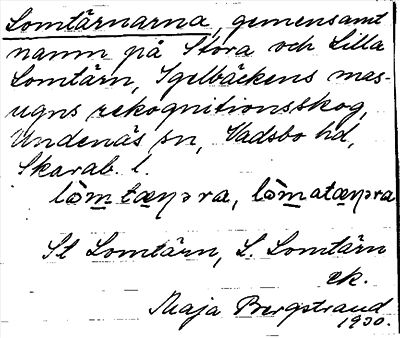 Lomtärnarna, gemensamt
namn på Stora och Lilla
Lomtärn, Igelbäckens mas-
ugns rekognitionsskog,
Undenäs sn, Vadsbo hd,
Skarab. l.
lòm̲tæṇɘra, lòm̲atæṇɘra
St Lomtärn, L. Lomtärn
ek.
Maja Bergstrand
1930.